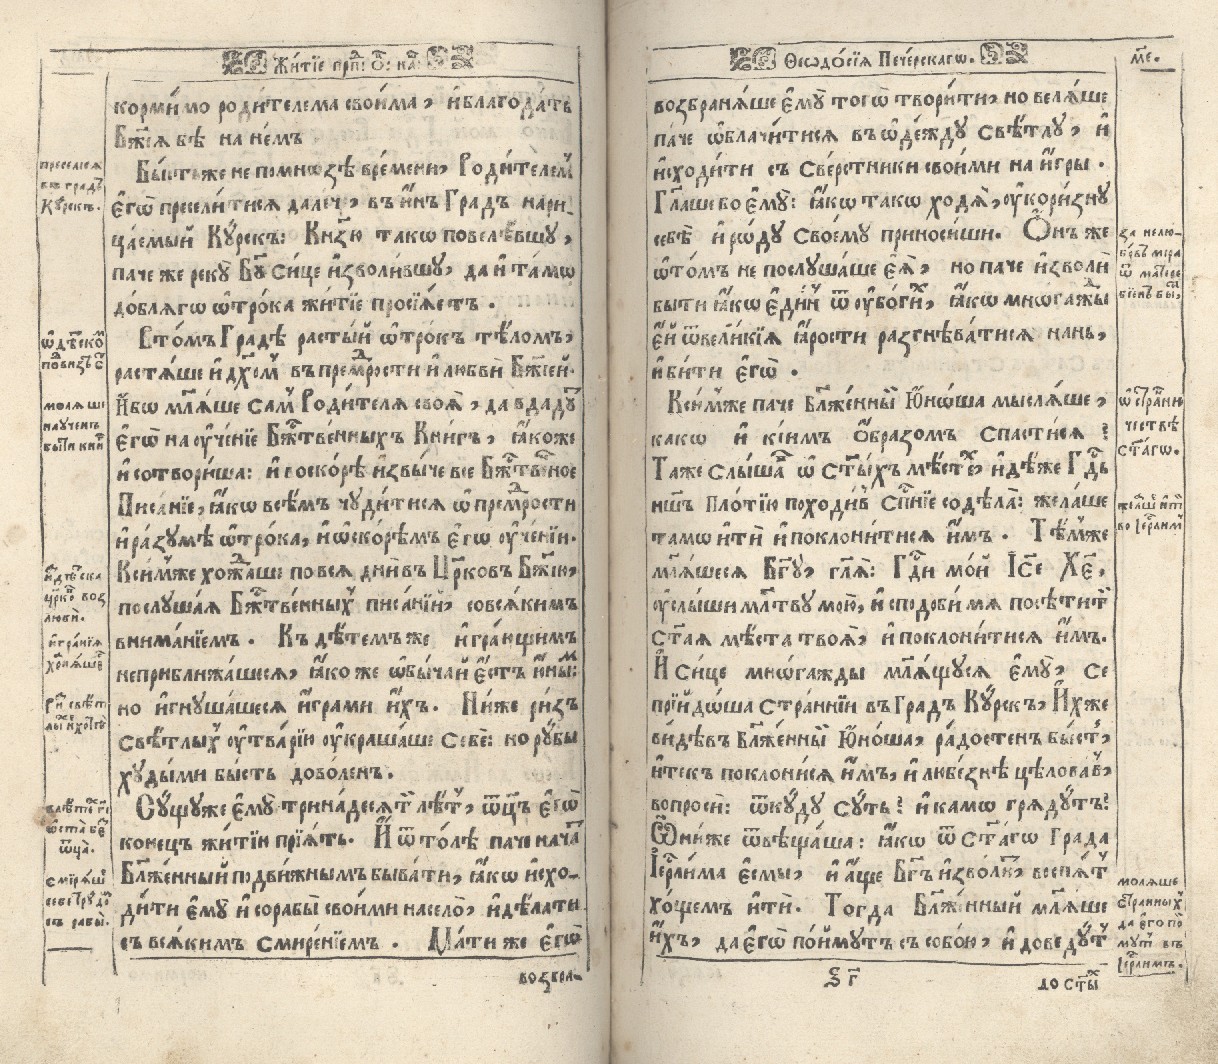 Житїе прпⷣ: ѻ҃: на҃:
корми́мо роди́телема свои́ма, и҆ благода́ть
Бж҃їѧ бѣ̀ на не́мъ
Бы́стъ же не помно́зѣ вре́мени, Роди́телем̾
є҆гѡ̀ пресели́тисѧ дале́че, въ и҆́нъ Гра́дъ нари-
ца́емый Ку́рскъ: Кнѧ́зю та́кѡ повелѣ́вшу,
па́че же рекꙋ̀ Бг҃ꙋ си́це и҆зво́лившу, да и҆ та́мѡ
до́блѧгѡ ѻ҆́трока житїе просїѧ́етъ.
В то́мъ Гра́дѣ расты́й ѻ҆́трокъ тѣ́ломъ,
растѧ́ше и҆ дх҃ом̾ въ прем҃рости и҆ любвѝ Бж҃їей.
И҆́бѡ млѧ́ше сам̾ Роди́телѧ своѧ̀, да вдадꙋ́т̾
є҆гѡ̀ на ѹ҆че́нїе Бж҃тве́нныхъ Кни́гъ, ꙗ҆́коже
и҆ сотвори́ша: и҆ воско́рѣ и҆звы́че все Бж҃твⷩ҇ное
Писа́нїе, ꙗ҆́кѡ всѣ́мъ чуди́тисѧ ѡ҆ прем҃рости
и҆ ра́зумѣ ѻ҆́трока, и҆ ѡ҆ ско́рѣмъ є҆гѡ̀ ѹ҆че́нїи.
Ксим̾же хожда́ше по всѧ̀ дни̑ въ Цр҃ковъ Бж҃їю,
послу́шаѧ Бж҃тве́нных̾ писа́нїй, со всѧ́кимъ
внима́нїемъ. Къ дѣ́темъ же и҆гра́ющимъ
неприближа́шесѧ, ꙗ҆́ко же ѡ҆бы́чай є҆́стъ ю҆́ным̾:
но и҆ гнуша́шесѧ и҆гра́ми и҆́хъ. Ни́же ри́зъ
свѣ́тлых̾ ѹ҆тва́рїю ѹ҆краша́ше себѐ: но ру́бы
худы́ми бы́сть дово́ленъ.
Сꙋ́щꙋ же є҆мꙋ̀ трина́десѧт̾ лѣ́т̾, ѻ҆ц҃ъ є҆гѡ̀
коне́цъ житїю̀ прїѧ́тъ. И҆ ѿто́лѣ па́че нача́т̾
Бл҃же́нный подви́жнымъ быва́ти, ꙗ҆́кѡ и҆схо-
ди́ти є҆мꙋ̀ и҆ со рабы̀ свои́ми на село̀, и҆ дѣ́лати
съ всѧ́кимъ смире́нїемъ. Ма́ти же є҆гѡ̀
возбра-
преселисѧ
въ градъ
Курскъ.
молѧше
научен̾
быти книг̾
играния
свѣт
смирѧше
себе
съ рабы.
Ѳеѡдо́сїѧ Пече́рскагѡ.
м҃е.
возбранѧ́ше є҆мꙋ̀ тогѡ̀ твори́ти, но велѧ́ше
па́че ѡ҆блачи́тисѧ въ ѻ҆де́ждꙋ свѣ́тлꙋ, и҆
и҆сходи́ти съ све́рстники свои́ми на и҆́гры.
Гл҃аше бо є҆мꙋ̀: ꙗ҆́кѡ та́кѡ ходѧ̀, ѹ҆кори́знꙋ
себѣ̀ и҆ ро́дꙋ своемꙋ̀ прино́сиши. Ѻ҆́нъ же
ѡ҆ то́мъ не послу́шаше є҆ѧ̀, но па́че и҆зво́ли
быти ꙗ҆́кѡ є҆ди́н̾ ѿ ѹ҆бо́гих̾, ꙗ҆́кѡ мно́гажды
є҆́й ѿ вели́кїѧ ꙗ҆́рости разгнѣ́ватисѧ на́нь,
и҆ би́ти є҆гѡ̀.
Ксим̾же па́че Бл҃же́нный Ю҆́нѡша мы́слѧше,
какѡ и҆ кїи́мъ ѻ҆́бразомъ спа́стисѧ?
Та́же слы́шав̾ ѡ҆ ст҃ы́хъ мѣ́стѣх̾, и҆дѣ́же Гдⷭ҇ь
нш҃ъ пло́тїю походи́в̾ сп҃нїе содѣ́ла: жела́ше
та́мѡ и҆тѝ и҆ поклони́тисѧ и҆́мъ. Тѣ́мже
млѧ́шесѧ Бг҃ꙋ, гл҃ѧ: Гдⷭ҇и мо́й Іс҃е Хе҃,
ѹ҆слы́ши мл҃твꙋ мою̀, и҆ сподо́би мѧ посѣ́тит̾
ст҃аѧ мѣ́ста твоѧ̀, и҆ поклони́тисѧ и҆́мъ.
И҆ си́це мно́гажды млѧ́щусѧ є҆мꙋ̀, се
прїидо́ша стра́ннїи въ гра́дъ Кꙋ́рскъ, И҆́хже
ви́дѣвъ Бл҃же́нный Ю҆́ноша, ра́достенъ бы́ст̾,
и҆ те́къ поклони́сѧ и҆́мъ, и҆ любе́знѣ цѣлова́в̾,
вопросѝ: ѿкꙋ́дꙋ сꙋ́ть? и҆ ка́мѡ грѧдꙋ́тъ?
Ѻ҆ни́же ѿвѣща́ша: ꙗ҆́кѡ ѿ ст҃а́гѡ гра́да
І҆ер҃ли́ма є҆смы̀, и҆ а҆́ще Бг҃ъ и҆зво́лит̾, вспѧ́т̾
хо́щемъ и҆тѝ. Тогда̀ Бл҃же́нный млѧ́ше
и҆́хъ, да є҆гѡ̀ по́ймутъ съ собо́ю, и҆ доведꙋ́т̾
Ѕ г҃
до ст҃ы́х̾
за нелю-
ѿ матере
ѡ странни
чествѣ
ст҃агѡ.
молѧше
странных̾
да его по
мут̾ въ
Іер҃лимъ.